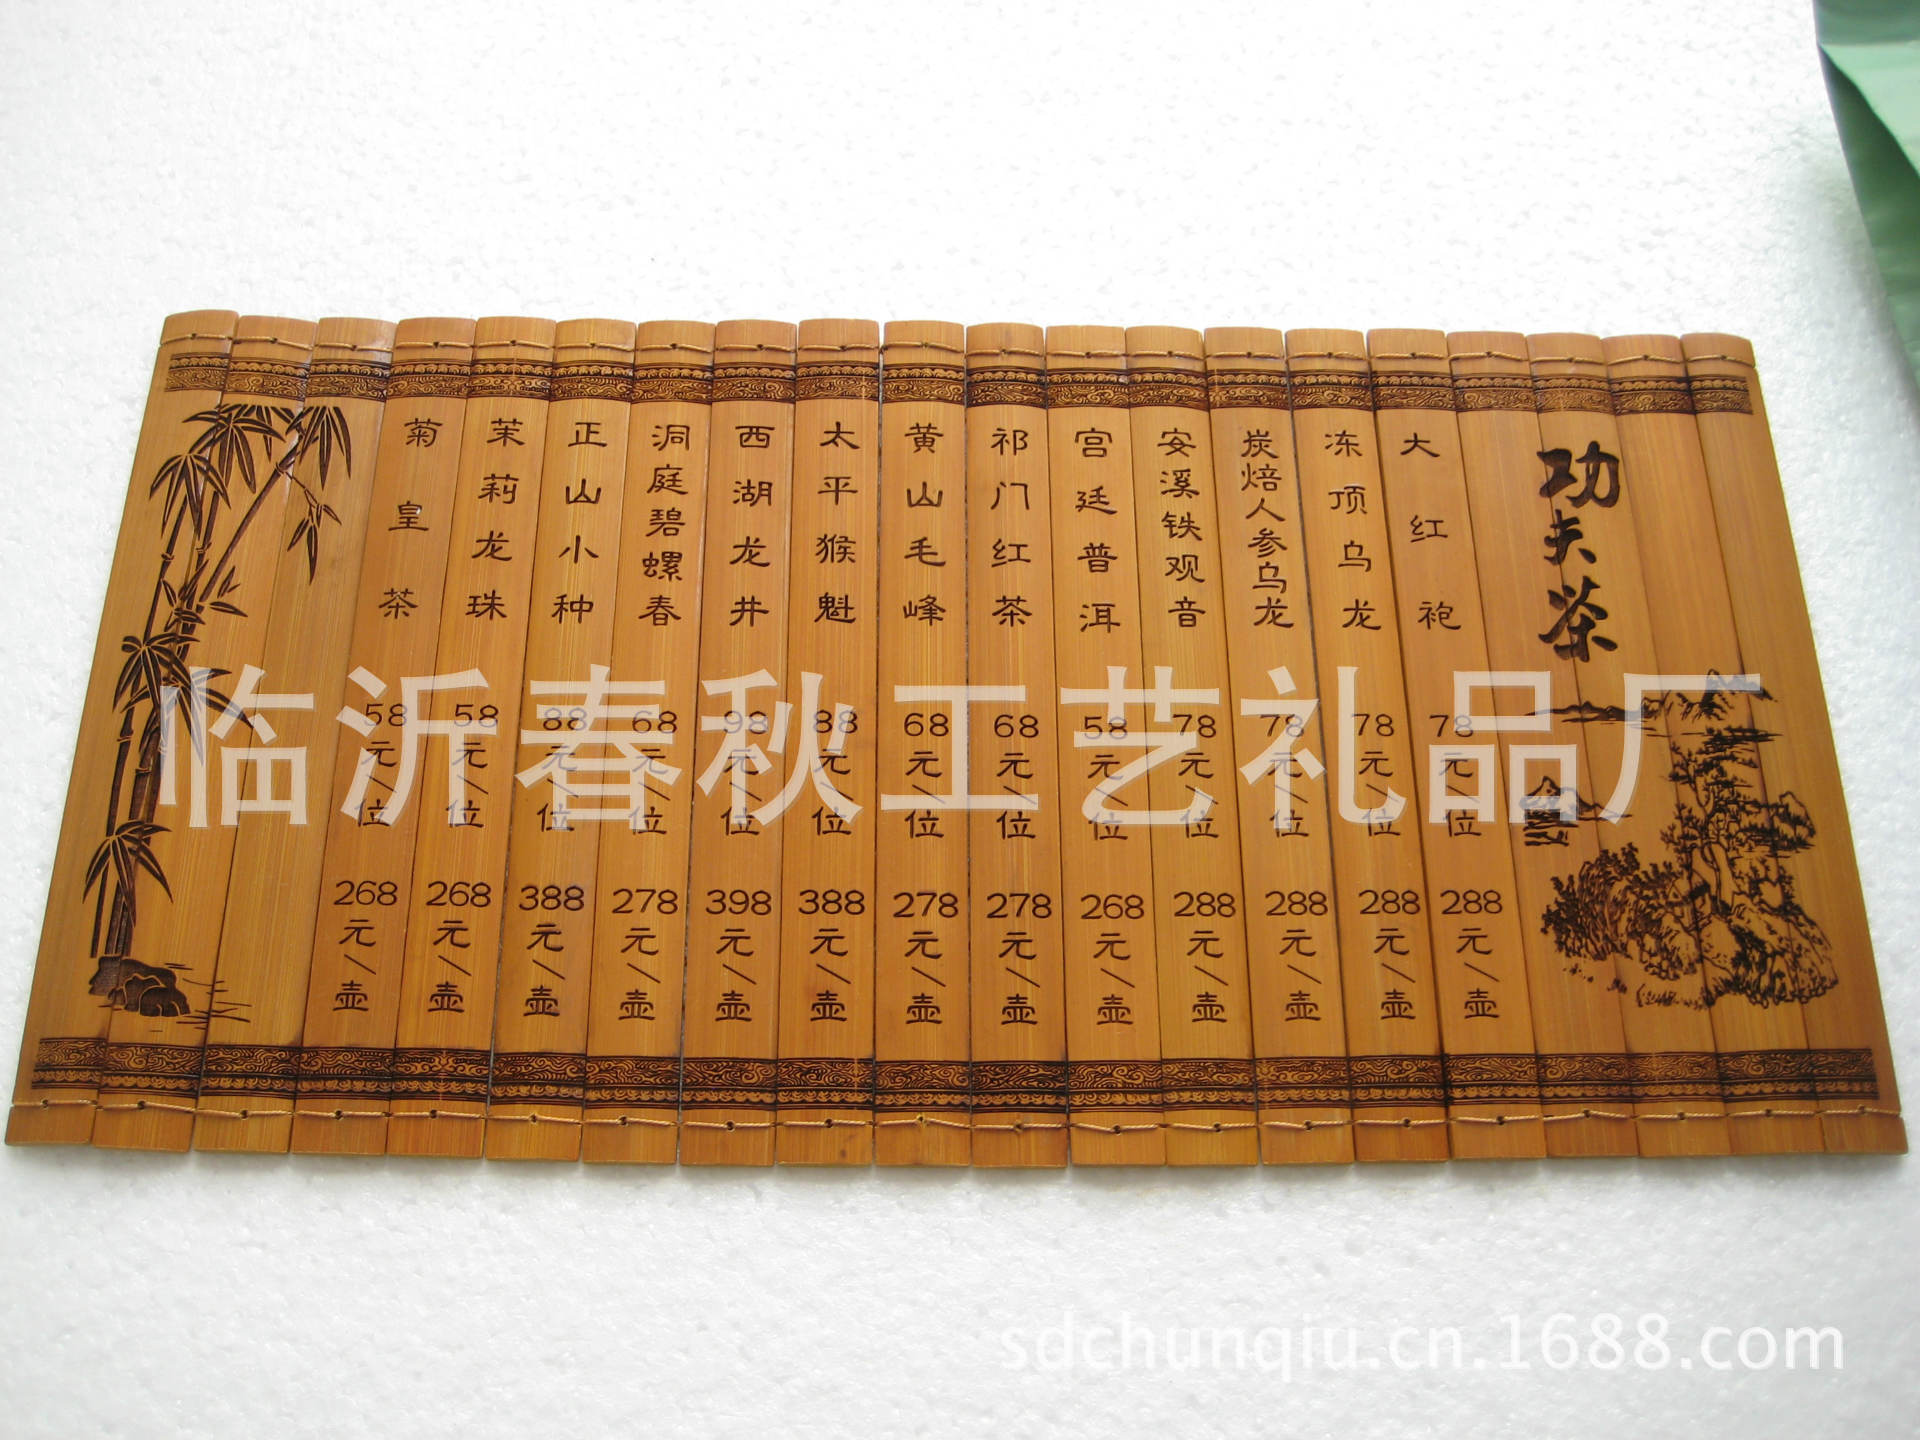 功夫茶
大红袍 78元/位 288元/壶
冻顶乌龙 78元/位 288元/壶
炭焙人参乌龙 78元/位 288元/壶
安溪铁观音 78元/位 288元/壶
宫廷普洱 58元/位 268元/壶
祁门红茶 68元/位 278元/壶
黄山毛峰 68元/位 278元/壶
太平猴魁 88元/位 388元/壶
西湖龙井 98元/位 398元/壶
洞庭碧螺春 68元/位 278元/壶
正山小种 88元/位 388元/壶
茉莉龙珠 58元/位 268元/壶
菊皇茶 58元/位 268元/壶
临沂春秋工艺礼品厂
sdchunqiu.cn.1688.com